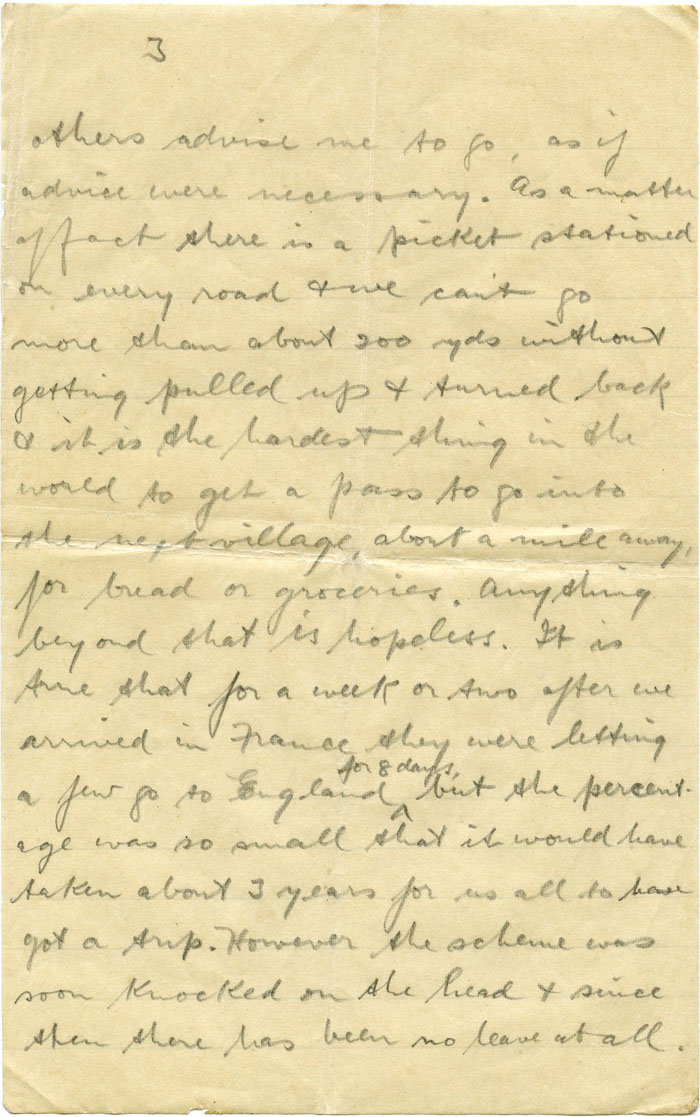 3
others advise me to go, as if
advice were necessary. As a matter
of fact there is a picket stationed
on every road & we can't go
more than about 200 yds without
getting pulled up & turned back
& it is the hardest thing in the
world to get a pass to go into
the next village, about a mile away,
for bread or groceries. Anything
beyond that is hopeless. It is
true that for a week or two after we
arrived in France they were letting
for 8 days,
a few go to England ^ but the percent-
age was so small that it would have
taken about 3 years for us all to have
got a trip. However the scheme was
soon knocked on the head & since
then there has been no leave at all.